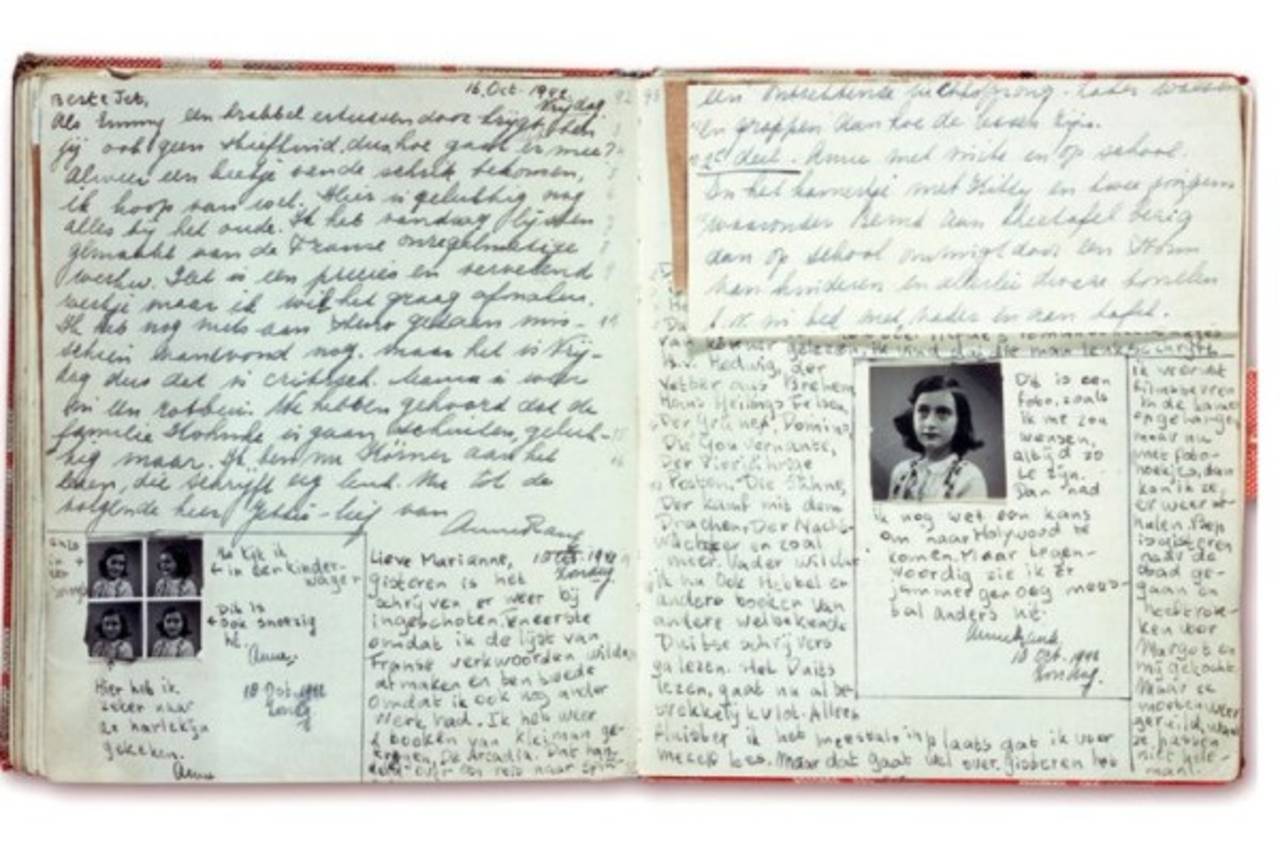 Beste Jet,
16. Oct. 1942
Vrijdag
Als Emmy een krabbel ertussendoor krijgt, ben
jij ook geen stiefkind, dus hoe gaat er mee?
Alweer een beetje van de schrik bekomen,
ik hoop van wel. Hier is gelukkig nog
alles bij het oude. Ik heb vandaag lijsten
gemaakt van de Franse onregelmatige
werkw. Dat is een precies en vervelend
werkje maar ik wil het graag afmaken.
Ik heb nog niets aan steno gedaan mis-
schien vanavond nog. maar het is Vrij-
dag dus dat is critisch. Mama is weer
in een robbui. We hebben gehoord dat de
familie is gaan, geluk-
kig maar. Ik ben nu Körner aan het
lezen, die schrijft erg leuk. Nu tot de
volgende keer Jetju-lief van
Anne Frank
Nu kijk ik
in een kinder-
wagen
Dit is
ook snoezig
hè.
Anne.
18 Oct. 1942
Zondag
Hier heb ik
zeker naar
de harlekijn
gekeken.
Anne
Lieve Marianne, 18 Oct. 1942
Zondag
gisteren is het
schrijven er weer bij
ingeschoten. Ten eerste
omdat ik de lijst van
Franse werkwoorden wilde
afmaken en ten tweede
omdat ik ook nog ander
werk had. Ik heb weer
2 boeken van Kleiman ge-
kregen, De Arcadia. Dat han-
delt over een reis naar
en grappen aan hoe de lessen zijn.
2e deel. Anne met niche en op school.
In het kamertje met Kitty en twee jongens
waaronder Bernd aan theetafel bezig
dan op school omringd door een stroom
van kinderen en allerlei dwaze tonelen
b.v. in bed met vader en aan tafel.
b.v. Hedwig, der
Vetter aus Bremen
Hans Heilings Felsen,
Der Grüne Domino,
Die Gouvernante,
Der Vierjährige
Posten, Die Sühne,
Der Kampf mit dem
Drachen, Der Nacht-
wächter en zoal
meer. Vader wilde
ik nu ook Hebbel en
andere boeken van
andere welbekende
Duitse schrijvers
ga lezen. Het Duits
lezen, gaat nu al be-
trekkelijk vlot. Alleen
fluister ik het meestal in plaats dat ik voor
mezelf lees. Maar dat gaat wel over. Gisteren heb
Dit is een
foto, zoals
ik me zou
wensen,
altijd zo
te zijn.
Dan had
ik nog wel een kans
om naar Holywood te
komen. Maar tegen-
woordig zie ik er
jammer genoeg mees-
tal anders uit.
Anne Frank.
18 Oct. 1942
Zondag.
ik weer
filmsterren
in de kamer
opgehangen
maar nu
met foto-
hoekjes, dan
kan ik ze
er weer af-
halen. Bep
is gisteren
naar de
stad ge-
gaan en
heeft rok-
ken voor
Margot en
mij gekocht.
Maar ze
moeten weer
geruild, want
ze passen
niet hele-
maal.